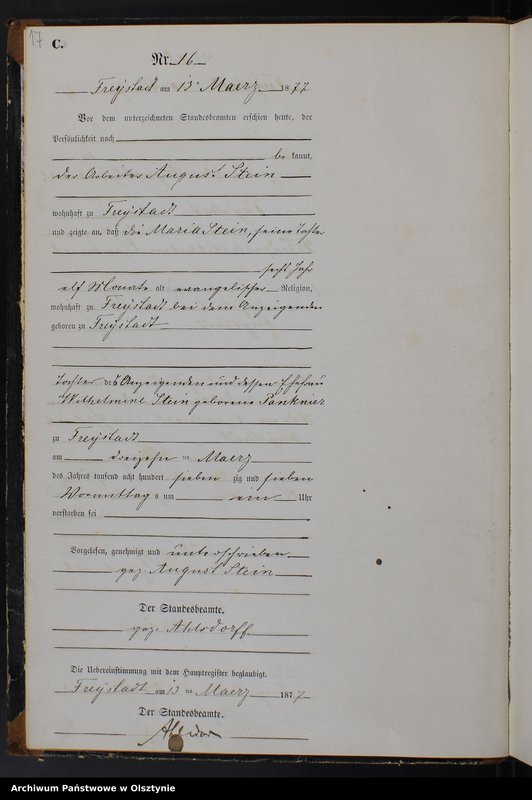 17
C.
Nr. 16
Freystadt am 13ᵗ Maerz 1877
Vor dem unterzeichneten Standesbeamten erschien heute, der
Persönlichkeit nach
be kannt,
der Arbeiter August Stein
wohnhaft zu Freystadt
und zeigte an, daß die Maria Stein, seine Tochter
sechs Jahr
elf Monate alt evangelischer Religion,
wohnhaft zu Freystadt bei dem Anzeigenden
geboren zu Freystadt
Tochter des Anzeigenden und dessen Ehefrau
Wilhelmine Stein geborene Panknier
zu Freystadt
am dreizehn ten Maerz
des Jahres tausend acht hundert sieben zig und sieben
Vormittag s um ein Uhr
verstorben sei
Vorgelesen, genehmigt und unterschrieben
gez. August Stein
Der Standesbeamte.
gez. Ahlsdorff
Die Uebereinstimmung mit dem Hauptregister beglaubigt.
Freystadt am 13 ten Maerz 1877
Der Standesbeamte.
Archiwum Państwowe w Olsztynie